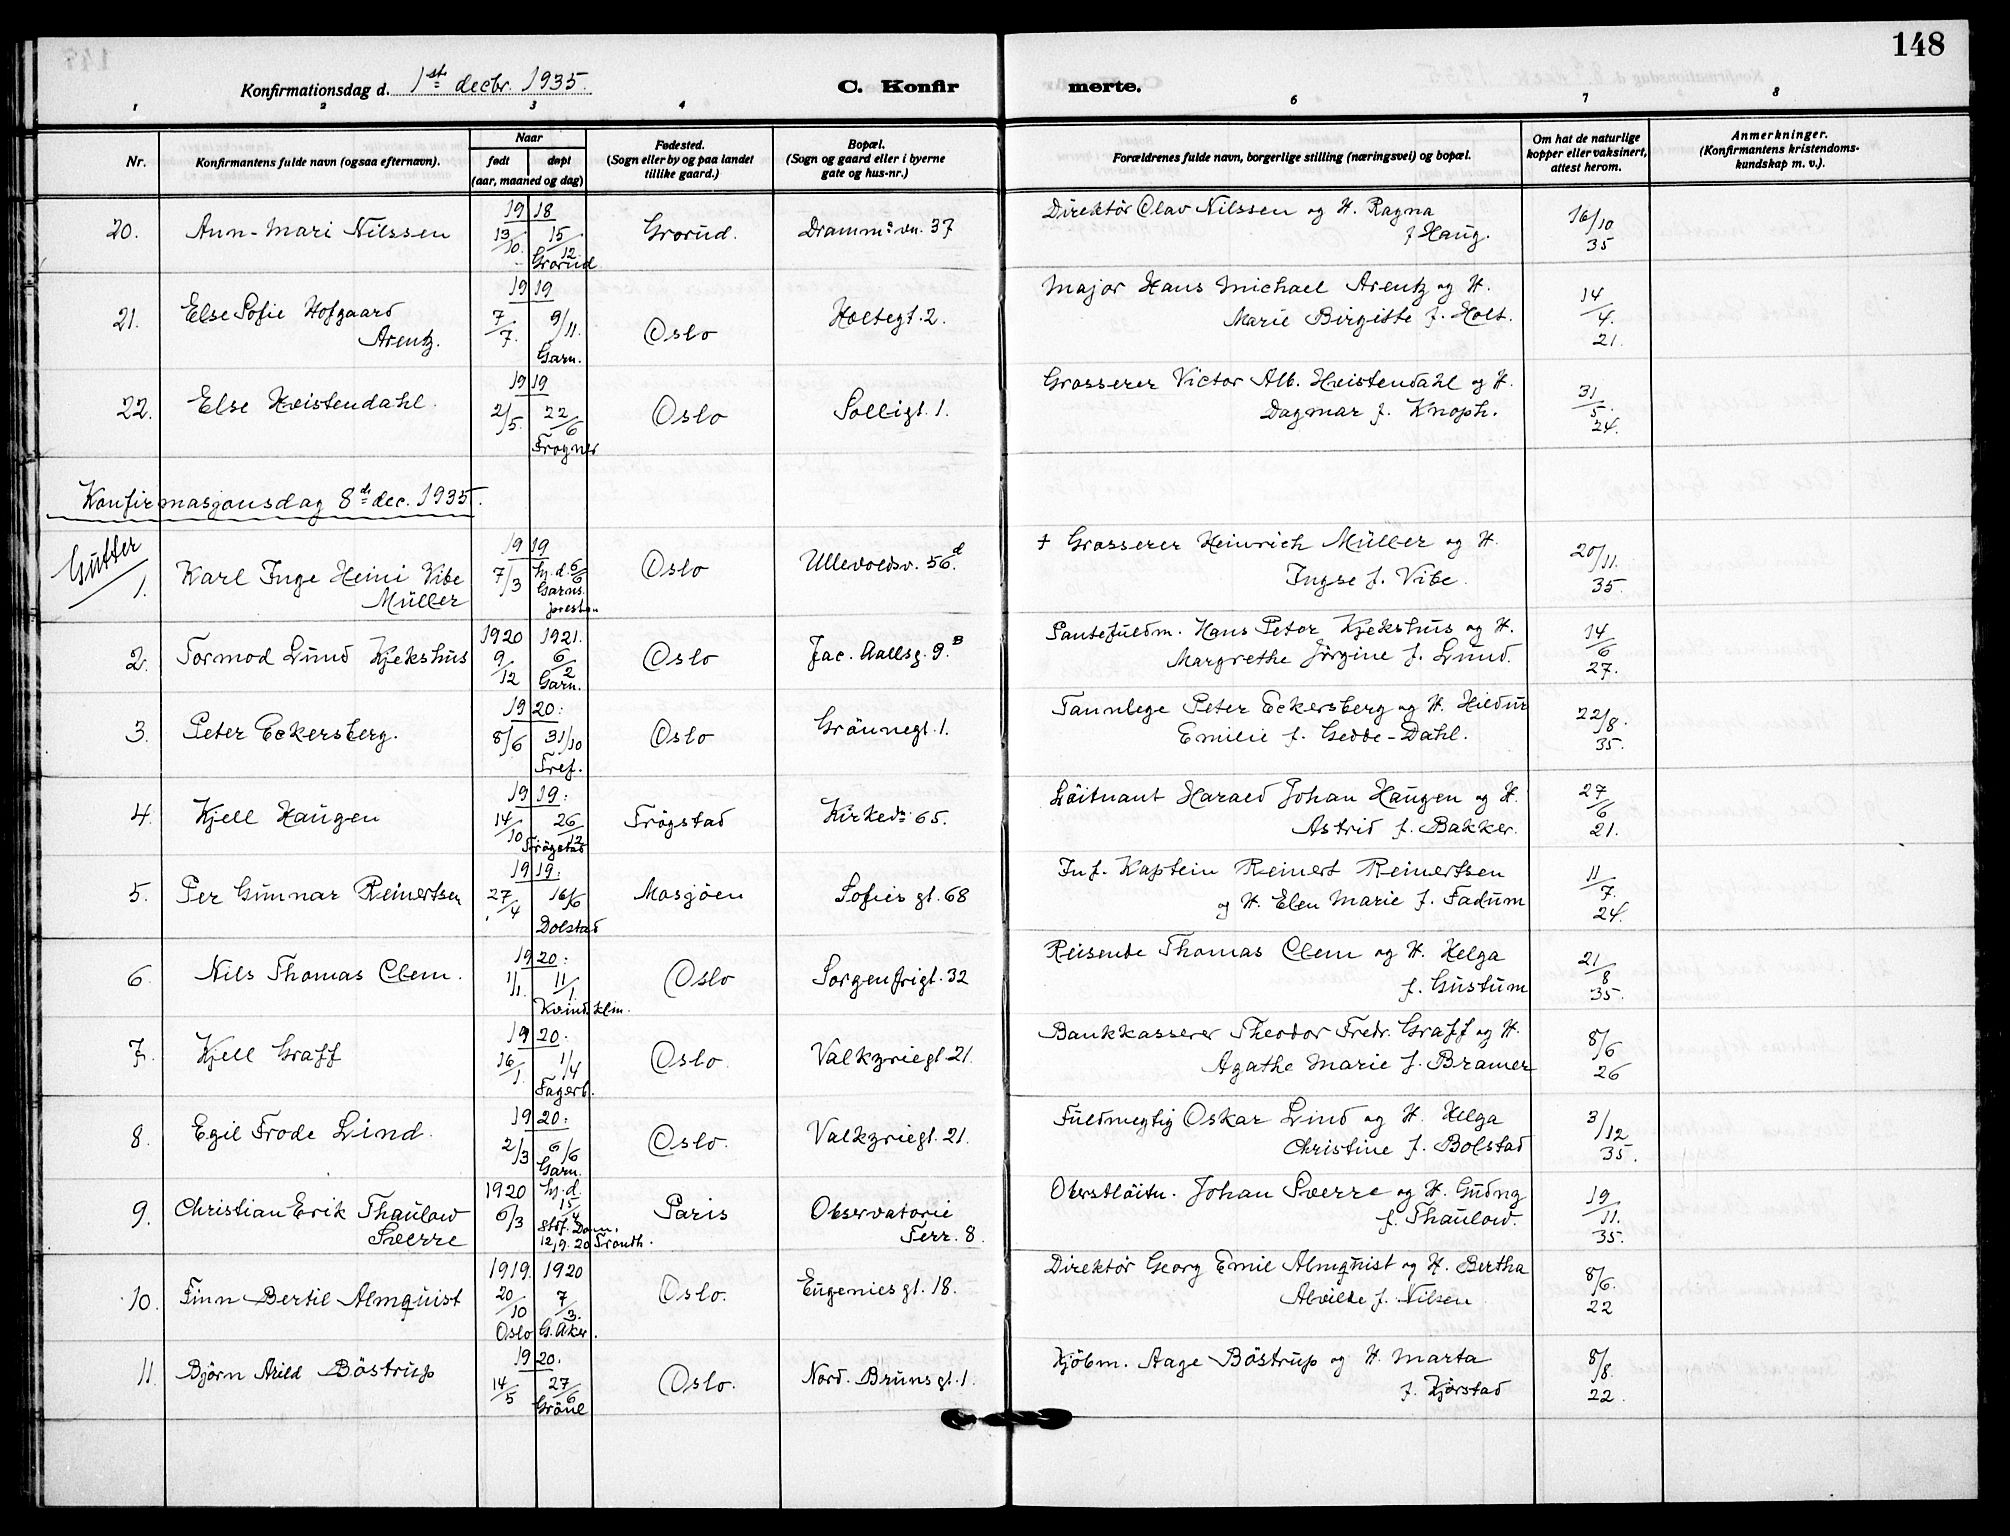 148
Konfirmationsdag d. 1st decbr. 1935.
C. Konfirmerte.
1 2 3 4 6 7 8
Nr.
Konfirmantens fulde navn (ogsaa efternavn).
Naar
født
døpt
(aar, maaned og dag)
Fødested.
(Sogn eller by og paa landet
tillike gaard.)
Bopæl.
(Sogn og gaard eller i byerne
gate og hus-nr.)
Forældrenes fulde navn, borgerlige stilling (næringsvei) og bopæl.
Om hat de naturlige
kopper eller vaksinert,
attest herom.
Anmerkninger.
(Konfirmantens kristendoms-
kundskap m. v.).
20. Ann-Mari Nilssen 1918 13/10. 15/12 Grorud Grorud. Dramms.vn. 37 Direktör Olav Nilssen og H. Ragna
f Haug. 16/10 35
21. Else Sofie Hofgaard
Arentz. 1919 7/7. 9/11. Garn. Oslo Holtegt. 2. Major Hans Michael Arentz og H.
Marie Birgitte f. Holt. 14/4. 21.
22. Else Hvistendahl. 1919 2/5. 22/6 Frogner Oslo Solligt. 1. Grosserer Victor Alb. Hvistendahl og H.
Dagmar f. Knoph. 31/5. 24.
Konfirmasjonsdag 8de dec. 1935.
Gutter
1. Karl Inge Heini Vibe
Müller 1919 7/3 hj. d. 6/6 Garns. presten Oslo Ullevoldsv. 56d. + Grosserer Heinrich Müller og H.
Ingse f. Vibe. 20/11. 35.
2. Tormod Lund Kjekshus 1920 9/12 1921. 6/2 Garn. Oslo Jac. Aallsg. 9.B Pantefuldm. Hans Peter Kjekshus og H.
Margrethe Jörgine f. Lund. 14/6 27.
3. Peter Eckersberg. 1920: 8/6 31/10 Tref. Oslo Grönnegt. 1. Tannlege Peter Eckersberg og H. Hildur
Emilie f. Gedde-Dahl. 22/8. 35.
4. Kjell Haugen 1919: 14/10 26/12 Trögstad Trögstad Kirkev: 65. Löitnant Harald Johan Haugen og H.
Astrid f. Bakker. 27/6 21.
5. Per Gunnar Reinertsen 1919: 27/4 16/6 Dolstad Mosjöen Sofies gt. 68 Inf. Kaptein Reinert Reinertsen
og H. Elen Marie f. Fadum 11/7. 24.
6 Nils Thomas Clem. 1920: 1/1. 11/1 Kvind.klin. Oslo Sorgenfrigt. 32 Reisende Thomas Clem og H. Helga
f. Gustum 21/8 35.
7. Kjell Graff 1920. 16/1. 1/4 Fagerb. Oslo. Valkyriegt. 21. Bankkasserer Theodor Fredr. Graff og H.
Agathe Marie f. Bramer 8/6 26
8. Egil Frode Lind. 1920: 2/3 6/6 Garn. Oslo. Valkyriegt. 21. Fuldmegtig Oskar Lind og H. Helga
Christine f. Bolstad 3/12 35.
9. Christian Erik Thaulow
Sverre 1920 6/3 hj. d. 15/4 Stdf. Dom. 12/9. 20 Trondh. Paris Observatorie
Terr. 8. Oberstlöitn. Johan Sverre og H. Gudny
f. Thaulow. 19/11. 35.
10. Finn Bertil Almquist 1919. 20/10 Oslo 1920 7/3. G. Aker. Oslo. Eugenies gt. 18. Direktör Georg Emil Almquist og H. Bertha
Alvilde f. Nilsen 8/6. 22
11. Björn Arild Böstrup 1920. 14/5 27/6 Grönl Oslo. Nord. Bruns gt. 1. Kjöbm. Aage Böstrup og H. Marta
f. Kjörstad 8/8. 22.